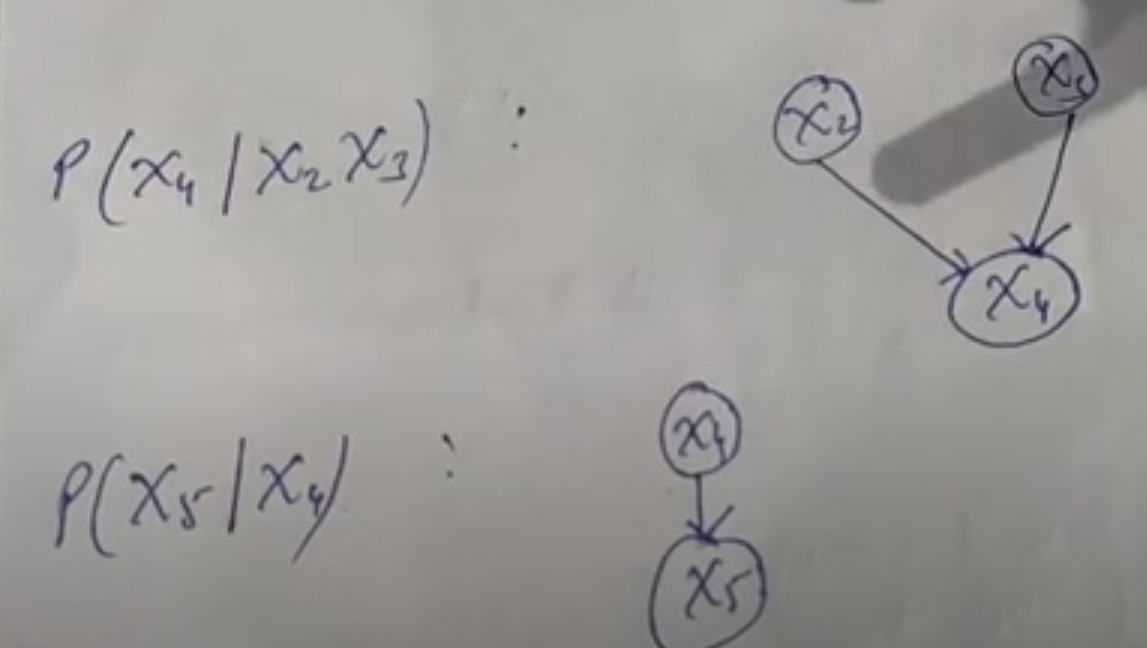 P(X₄ | X₂ X₃) : X₂ X₃
X₄
P(X₅ | X₄) : X₄
X₅